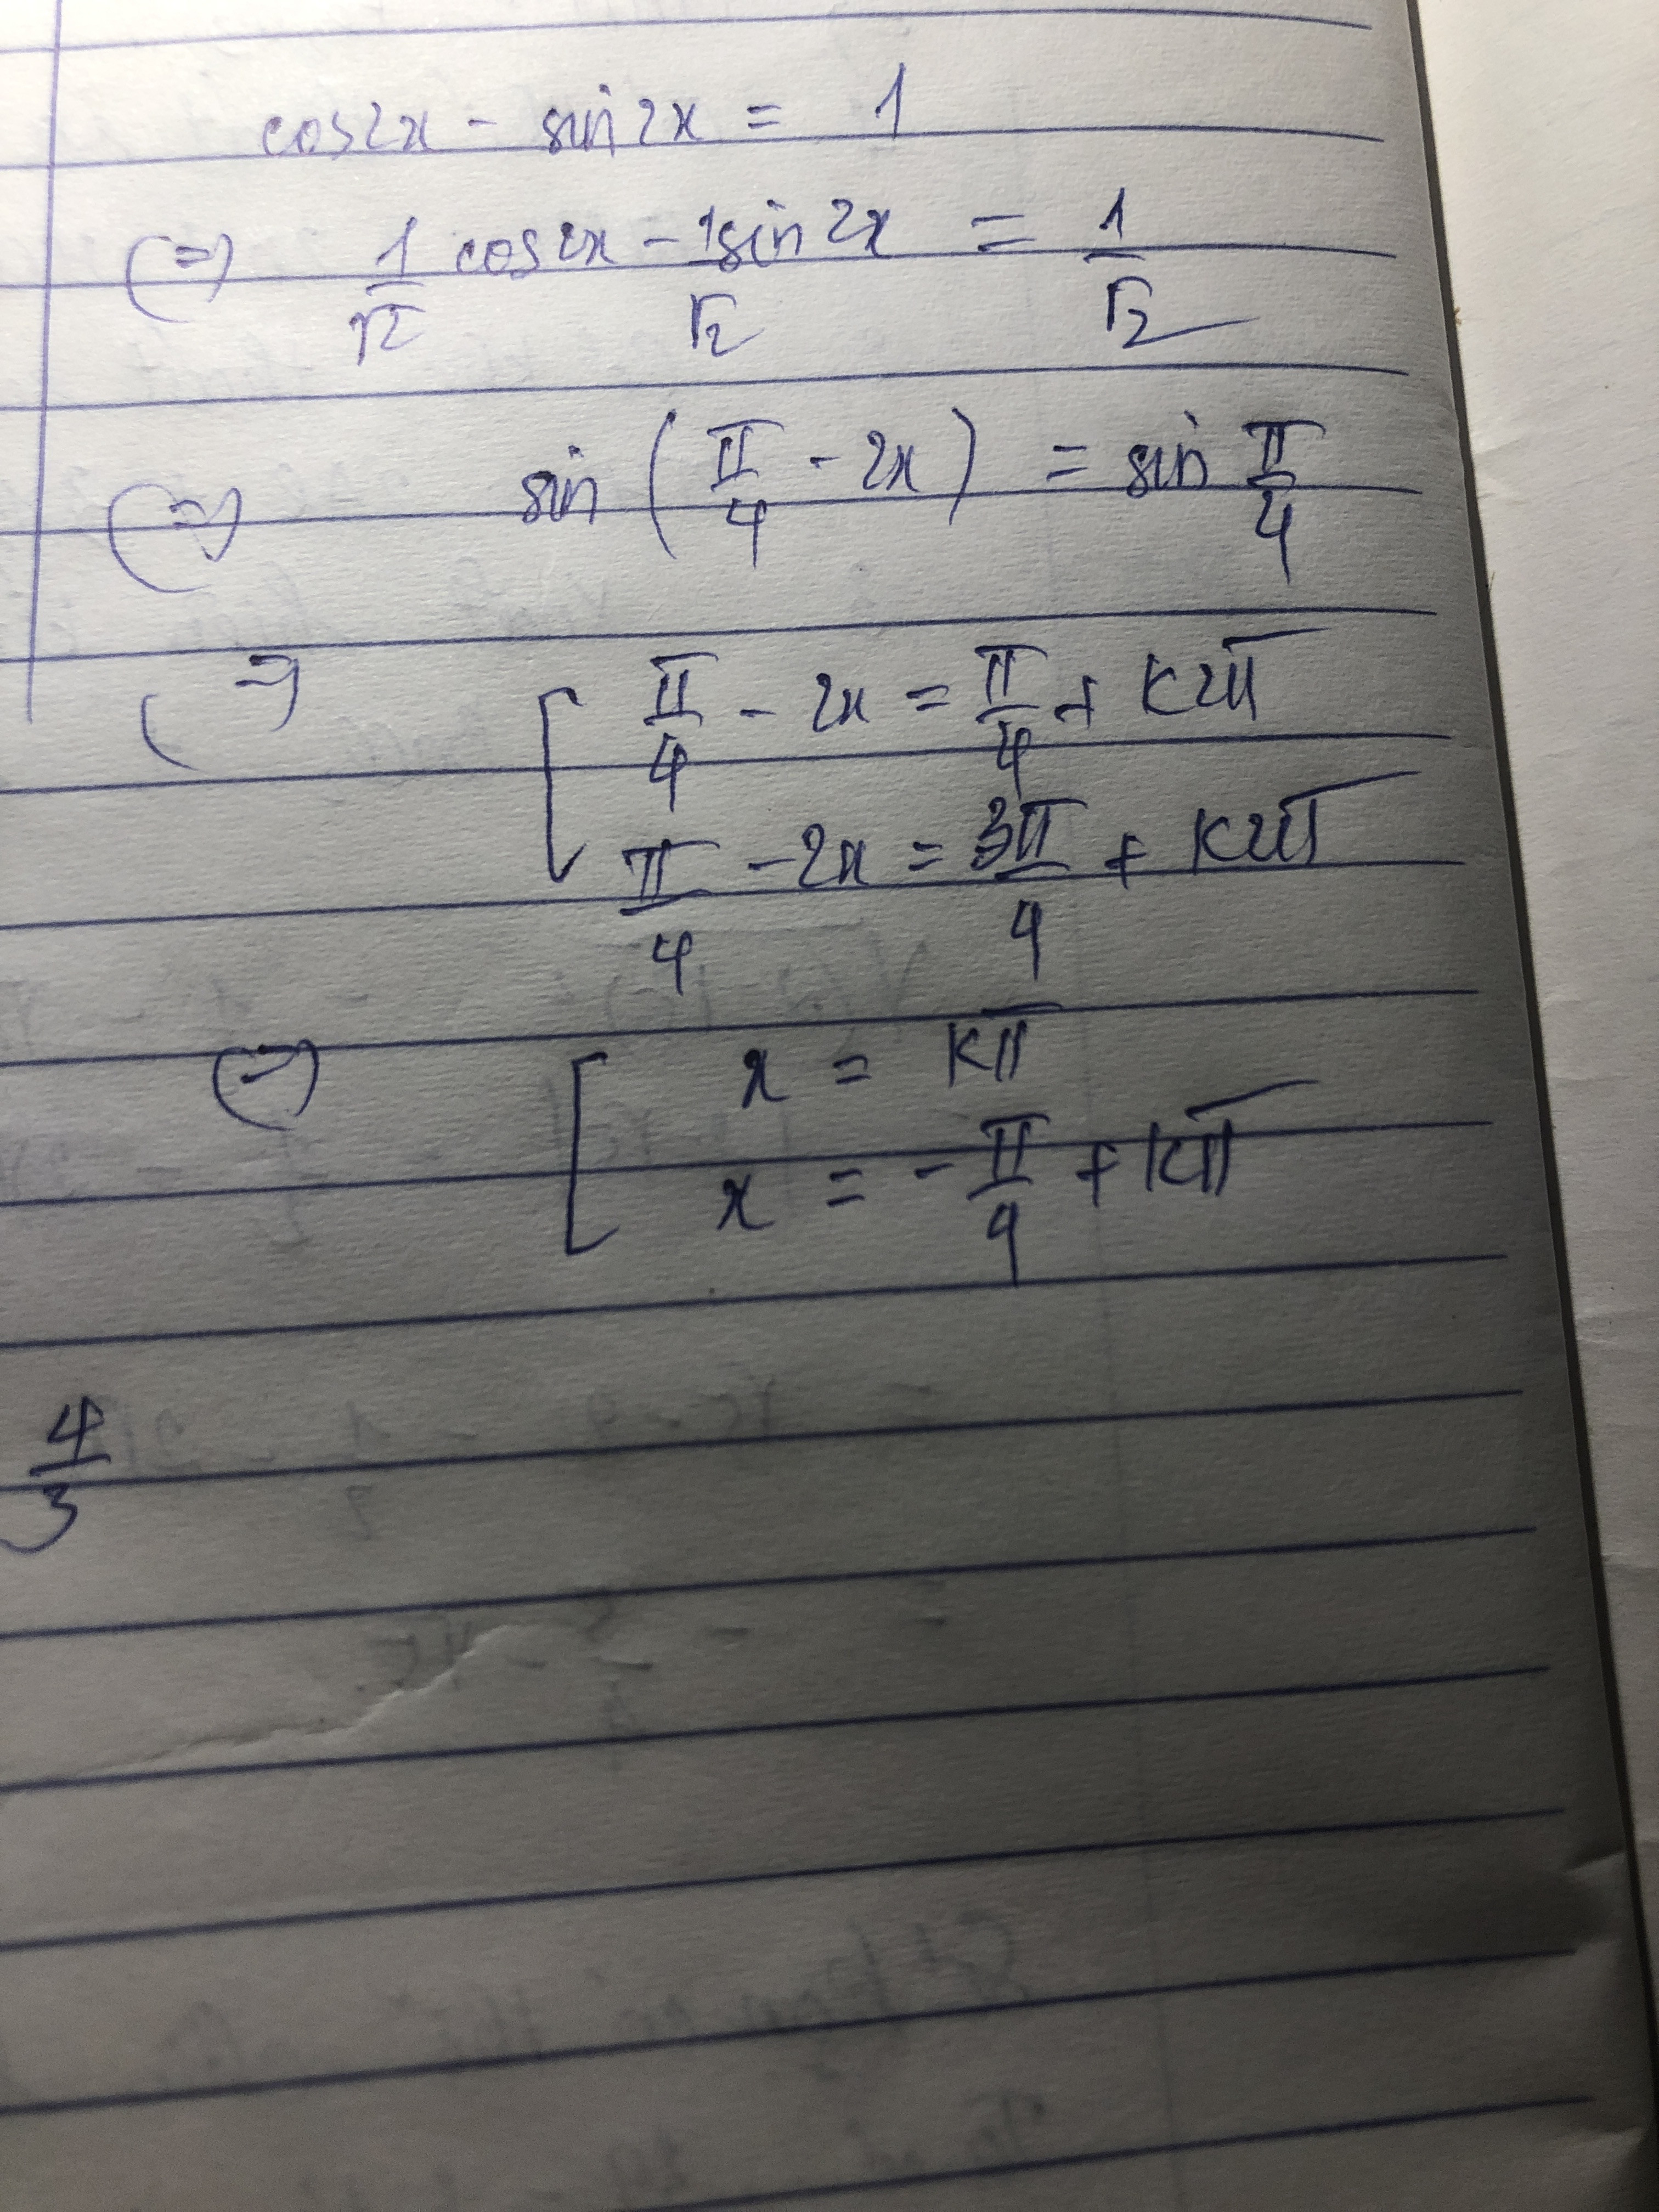 cos2x - sin2x = 1
(=) 1/√2 cos2x - 1/√2 sin2x = 1/√2
(=) sin(π/4 - 2x) = sin π/4
(=) [ π/4 - 2x = π/4 + k2π
π/4 - 2x = 3π/4 + k2π
(=) [ x = kπ
x = -π/4 + kπ
4/3